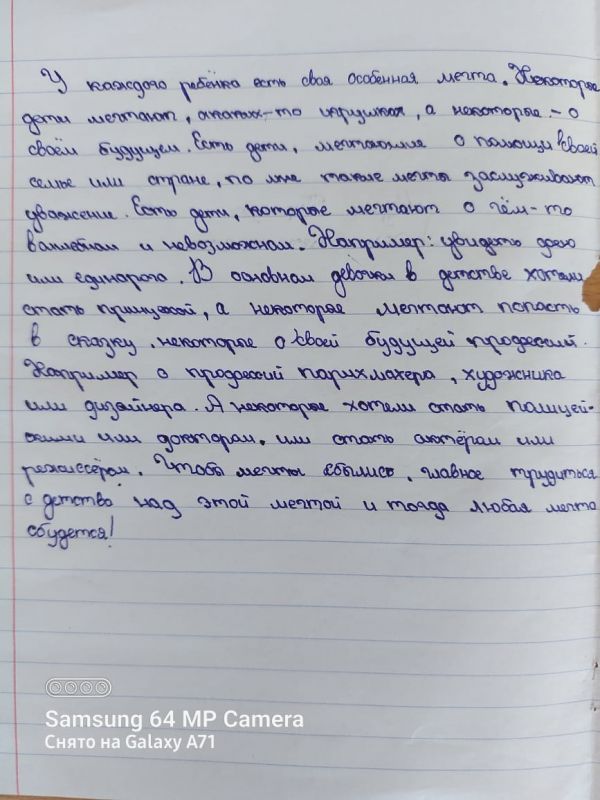 У каждого ребёнка есть своя особенная мечта. Некоторые
дети мечтают, о каких-то игрушках, а некоторые - о
своём будущем. Есть дети, мечтающие о помощи своей
семье или стране, по мне такие мечты заслуживают
уважение. Есть дети, которые мечтают о чём-то
волшебном и невозможном. Например: увидеть фею
или единорога. В основном девочки в детстве хотели
стать принцессой, а некоторые мечтают попасть
в сказку, некоторые о своей будущей профессий.
Например о профессий парикмахера, художника
или дизайнера. А некоторые хотели стать полицей-
скими или доктором, или стать актёром или
режиссёром. Чтобы мечты сбылись, главное трудиться
с детства над этой мечтой и тогда любая мечта
сбудется!
Samsung 64 MP Camera
Снято на Galaxy A71